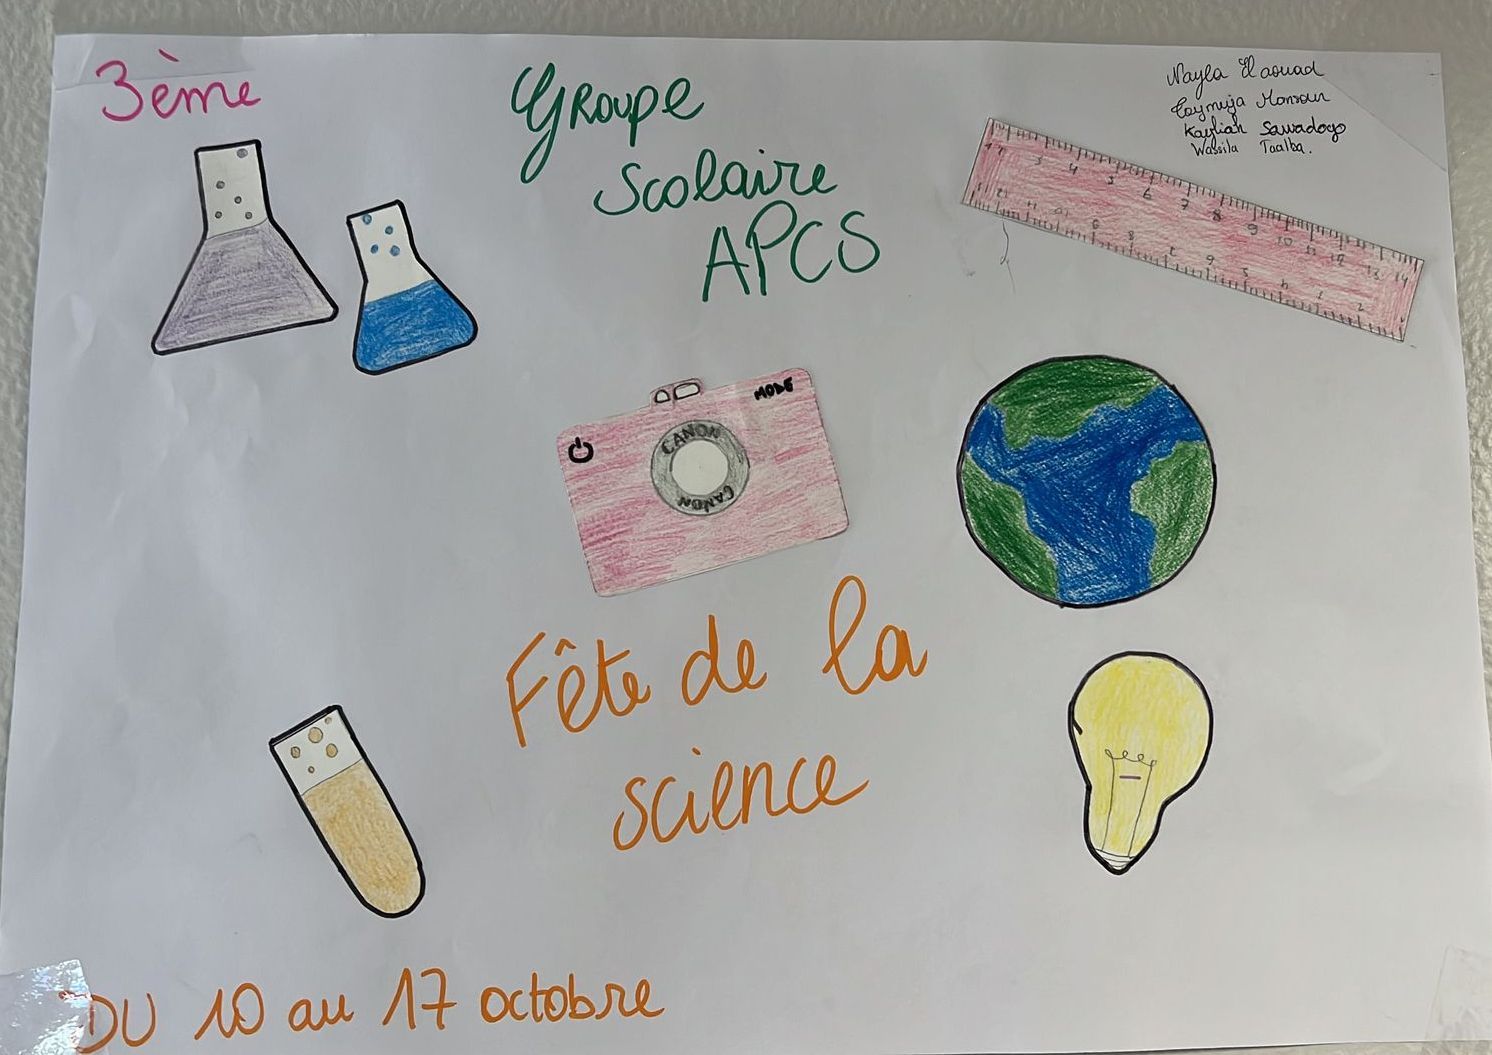 3ème
Groupe
Scolaire
APCS
Nayla El aouad
Mansour
Kayliah Sawadogo
Wassila Taalba.
MODE
CANON
CANON
Fête de la
science
DU 10 au 17 octobre